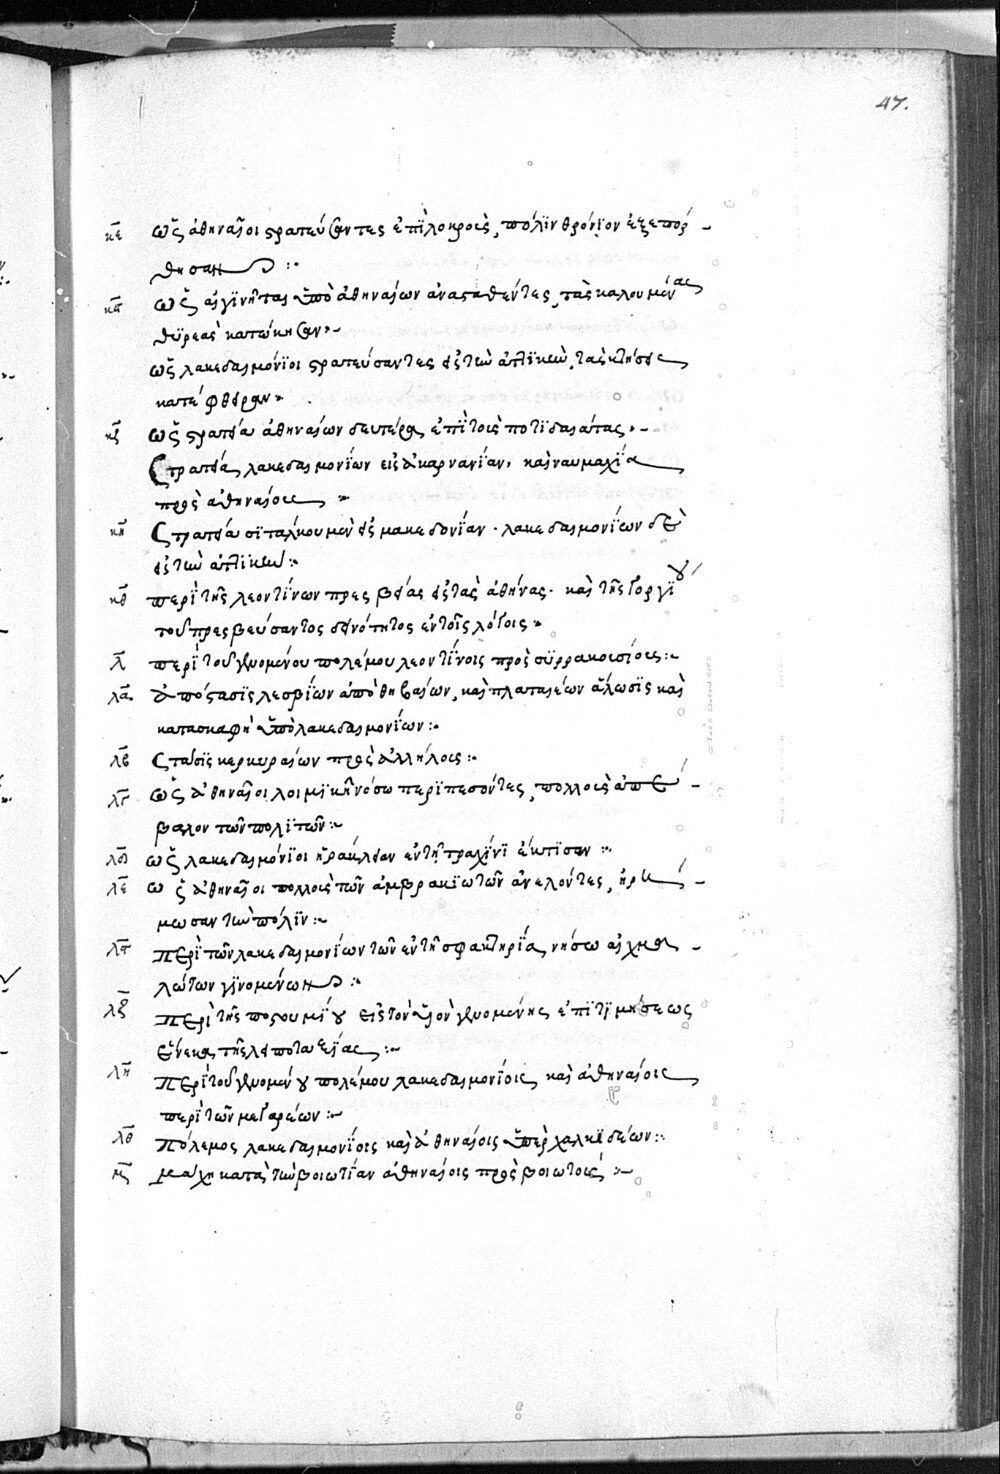 47.
κε ὡς ἀθηναῖοι στρατεύσαντες ἐπὶ λοκροὺς, πόλιν θρόνιον ἐξεπόρ-
θησαν:
κϛ ὡς αἰγινῆται ὑπὸ ἀθηναίων ἀνασταθέντες, τὰς καλουμένας
θυρεὰς κατώκησαν.
ὡς λακεδαιμόνιοι στρατεύσαντες εἰς τὴν ἀττικὴν, τὰς κτήσεις
κατέφθειραν.
κζ ὡς στρατεία ἀθηναίων δευτέρα ἐπὶ τοὺς ποτιδαιάτας.
Στρατεία λακεδαιμονίων εἰς ἀκαρνανίαν, καὶ ναυμαχία
πρὸς ἀθηναίους
κη Στρατεία σιτάλκου μὲν εἰς μακεδονίαν. λακεδαιμονίων δὲ
εἰς τὴν ἀττικήν:
κθ περὶ τῆς λεοντίνων πρεσβείας εἰς τὰς ἀθήνας. καὶ τῆς γοργίου
τοῦ πρεσβεύσαντος δεινότητος ἐν τοῖς λόγοις
λ περὶ τοῦ γενομένου πολέμου λεοντίνοις πρὸς συρρακουσίους:
λα ἀπόστασις λεσβίων ἀπὸ θηβαίων, καὶ πλαταιέων ἅλωσις καὶ
κατασκαφὴ ὑπὸ λακεδαιμονίων:
λβ Στάσις κερκυραίων πρὸς ἀλλήλους:
λγ ὡς ἀθηναῖοι λοιμικῇ νόσω περιπεσόντες, πολλοὺς ἀπέ-
βαλον τῶν πολιτῶν:
λδ ὡς λακεδαιμόνιοι ἡράκλειαν ἐν τῇ τραχίνι ἔκτισαν:
λε ὡς ἀθηναῖοι πολλοὺς τῶν ἀμβρακιωτῶν ἀνελόντες, ἠρή-
μωσαν τὴν πόλιν:
λϛ περὶ τῶν λακεδαιμονίων τῶν ἐν τῇ σφακτηρία νήσω αἰχμα-
λώτων γινομένων:
λζ περὶ τῆς ποστουμίου εἰς τὸν υἱὸν γενομένης ἐπιτιμήσεως
ἕνεκα τῆς λειποταξίας:
λη περὶ τοῦ γενομένου πολέμου λακεδαιμονίοις καὶ ἀθηναίοις
περὶ τῶν μεγαρέων:
λθ πόλεμος λακεδαιμονίοις καὶ ἀθηναίοις ὑπὲρ χαλκιδέων:
μ μάχη κατὰ τὴν βοιωτίαν ἀθηναίοις πρὸς βοιωτούς: